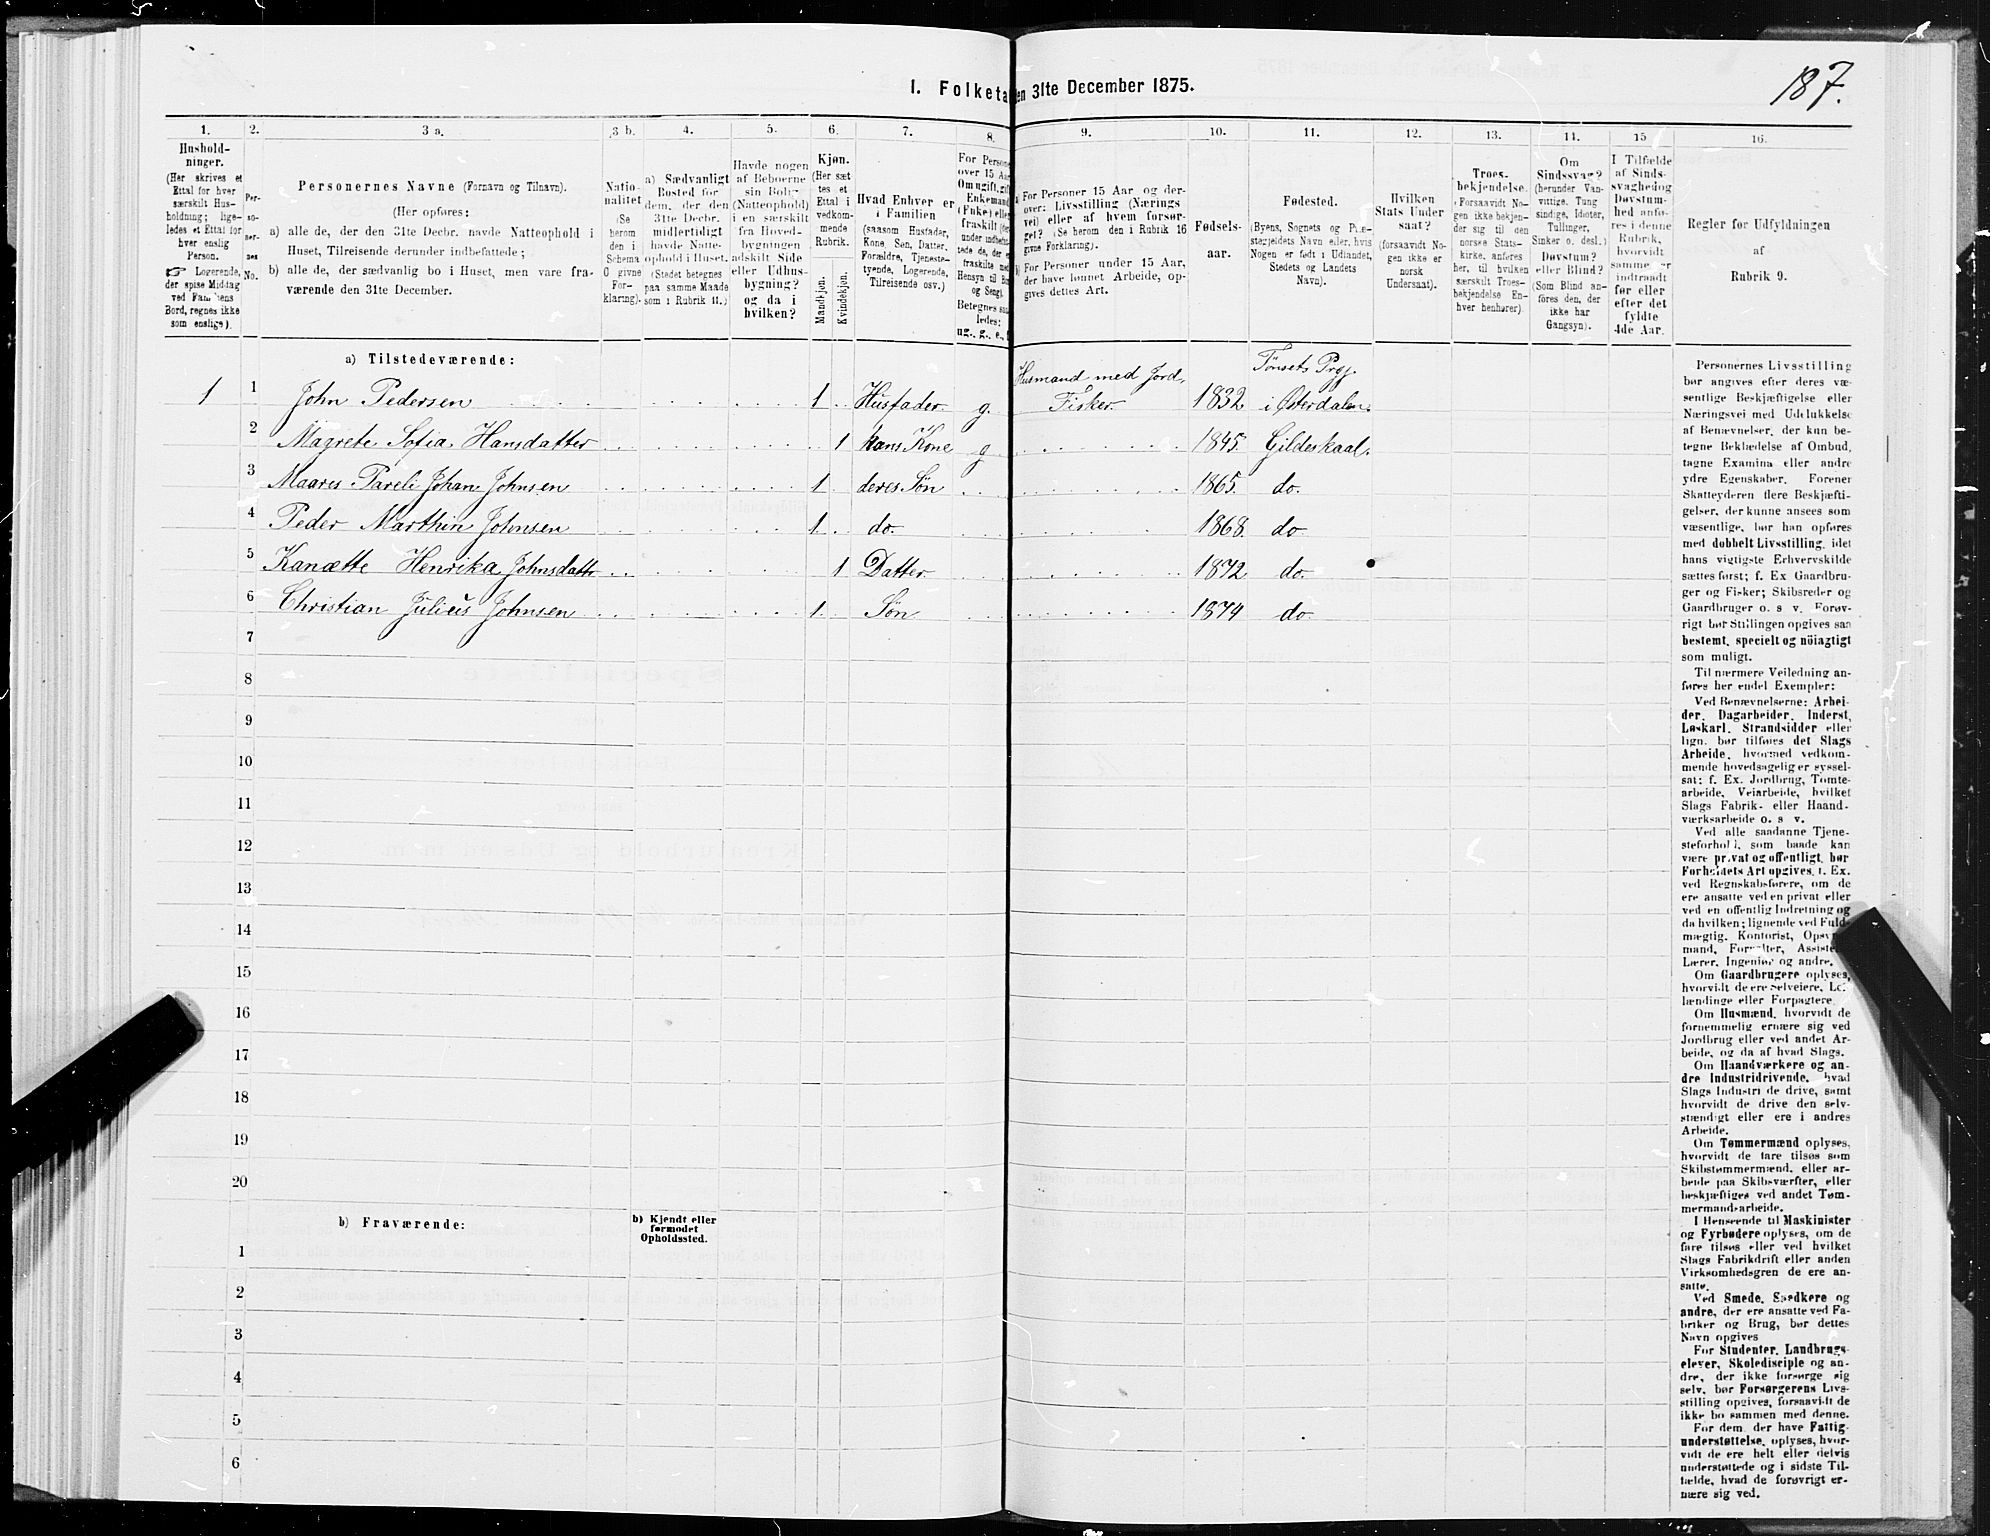 187.
I. Folketa en 31te December 1875.
1. 2. 3 a. 3 b. 4. 5. 6. 7. 8. 9. 10. 11. 12. 13. 14. 15 16.
Hushold-
ninger.
(Her skrives et
Ettal for hver
særskilt Hus-
holdning; lige-
ledes et Ettal for
hver enslig
Person.
☞ Logerende,
der spise Middag
ved Familiens
Bord, regnes ikke
som enslige).
Per-
so-
ner-
nes
No.
Personernes Navne (Fornavn og Tilnavn).
(Her opføres:
a) alle de, der den 31te Decbr. havde Natteophold i
Huset, Tilreisende derunder indbefattede;
b) alle de, der sædvanlig bo i Huset, men vare fra-
værende den 31te December.
Natio-
nalitet
(Se
herom
den i
Schema
C givne
For-
klaring).
a) Sædvanligt
Bosted for
dem, der den
31te Decbr.
midlertidigt
havde Natte-
ophold i Huset.
(Stedet betegnes
paa samme Maade
som i Rubrik 11.)
Havde nogen
af Beboerne
sin Bolig
(Natteophold)
i en særskilt
fra Hoved-
bygningen
adskilt Side
eller Udhus-
bygning?
og da i
hvilken?
Kjøn.
(Her sæt
tes et
Ettal i
vedkom-
mende
Rubrik.
Mandkjøn.
Kvindekjøn.
Hvad Enhver er
i Familien
(saasom Husfader,
Kone, Søn, Datter,
Forældre, Tjeneste-
tyende, Logerende,
Tilreisende osv.)
For Persone
over 15 Aar
Om ugift, gift
Enkemand
(Enke) elle
fraskilt
under indbefat
tede de, der e
fraskilte med
Hensyn til Bo
og Seng).
Betegnes saa
ledes:
ug., g., e.,
a) For Personer 15 Aar og der-
over: Livsstilling (Nærings
vei) eller af hvem forsør-
get? (Se herom den i Rubrik 16
givne Forklaring).
b) For Personer under 15 Aar,
der have lønnet Arbeide, op-
gives dettes Art.
Fødsels-
aar.
Fødested.
(Byens, Sognets og Præ-
stegjeldets Navn eller, hvis
Nogen er født i Udlandet,
Stedets og Landets
Navn).
Hvilken
Stats Under
saat?
(forsaavidt No-
gen ikke er
norsk
Undersaat).
Troes-
bekjendelse.
(Forsaavidt No-
gen ikke bekjen-
der sig til den
norske Stats-
kirke, anføres
her, til hvilken
særskilt Troes-
bekjendelse En-
hver henhører).
Om
Sindssvag?
(herunder Van-
vittige, Tung
sindige, Idioter,
Tullinger,
Sinker o. desl.)
Døvstum?
eller Blind?
(Som Blind an-
føres den, der
ikke har
Gangsyn).
I Tilfælde
af Sinds-
svaghed og
Døvstum-
hed anfø-
res i denne
Rubrik,
hvorvidt
samme er
indtraadt
før eller
efter det
fyldte
4de Aar.
Regler for Udfyldningen
af
Rubrik 9.
a) Tilstedeværende:
1 1 John Pedersen 1 Husfader g. Husmand med Jord, Fisker. 1832 Tønsets Prgj. i Østerdalen.
2 Magrete Sofia Hansdatter 1 hans Kone g 1845 Gildeskaal.
3 Maares Pareli Johan Johnsen 1 deres Søn 1865 do.
4 Peder Marthin Johnsen 1 do. 1868 do
5 Kanætte Henrika Johnsdattr 1 Datter 1872 do.
6 Christian Julius Johnsen 1 Søn 1874 do.
7
8
9
10
11
12
13
14
15
16
17
18
19
20
b) Fraværende:
b) Kjendt eller
formodet
Opholdssted.
1
2
3
4
5
6
Personernes Livsstilling
bør angives efter deres væ-
sentlige Beskjæftigelse eller
Næringsvei med Udelukkelse
af Benævnelser, der kun be-
tegne Beklædelse af Ombud,
tagne Examina eller andre
ydre Egenskaber. Forener
Skatteyderen flere Beskjæfti-
gelser, der kunne ansees som
væsentlige, bør han opføres
med dobbelt Livsstilling, idet
hans vigtigste Erhvervskilde
sættes først; f. Ex Gaardbru-
ger og Fisker; Skibsreder og
Gaardbruger o. s v. Forøv-
rigt bør Stillingen opgives saa
bestemt, specielt og nöiagtigt
som muligt.
Til nærmere Veiledning an-
føres her endel Exempler:
Ved Benævnelserne: Arbei-
der, Dagarbeider, Inderst,
Løskarl, Strandsidder eller
lign. bør tilføies det Slags
Arbeide, hvormed vedkom-
mende hovedsagelig er syssel-
sat; f. Ex. Jordbrug, Tomte-
arbeide, Veiarbeide, hvilket
Slags Fabrik- eller Haand-
værksarbeide o. s v.
Ved alle saadanne Tjene-
steforhold, som baade kan
være privat og offentligt, bør
Forholdets Art opgives, f. Ex.
ved Regnskabsførere, om de
ere ansatte ved en privat eller
ved en offentlig Indretning og
da hvilken; lignende ved Fuld-
mægtig, Kontorist, Opsyns-
mand, Forvalter, Assistent,
Lærer, Ingeniør og andre.
Om Gaardbrugere oplyses,
hvorvidt de ere Selveiere, Lei-
lændinge eller Forpagtere.
Om Husmænd, hvorvidt de
fornemmelig ernære sig ved
Jordbrug eller ved andet Ar-
beide, og da af hvad Slags.
Om Haandværkere og an-
dre Industridrivende, hvad
Slags Industri de drive, samt
hvorvidt de drive den selv-
stændigt eller ere i andres
Arbeide.
Om Tømmermænd oplyses,
hvorvidt de fare tilsøs som
Skibstømmermænd, eller ar-
beide paa Skibsværfter, eller
beskjæftiges ved andet Tøm-
mermandsarbeide.
I Henseende til Maskinister
og Fyrbødere oplyses, om de
fare tilsøs eller ved hvilket
Slags Fabrikdrift eller anden
Virksomhedsgren de ere an-
satte.
Ved Smede, Snedkere og
andre, der ere ansatte ved Fa-
briker og Brug, bør dettes
Navn opgives
For Studenter, Landbrugs-
elever, Skoledisciple og an-
dre, der ikke forsørge sig
selv, bør Forsørgerens Livs-
stilling opgives, forsaavidt de
ikke bo sammen med denne.
For dem, der have Fattig-
understøttelse, oplyses, hvor-
vidt de ere helt eller delvis
understøttede og i sidste Til-
fælde, hvad de forøvrigt er-
nære sig ved.